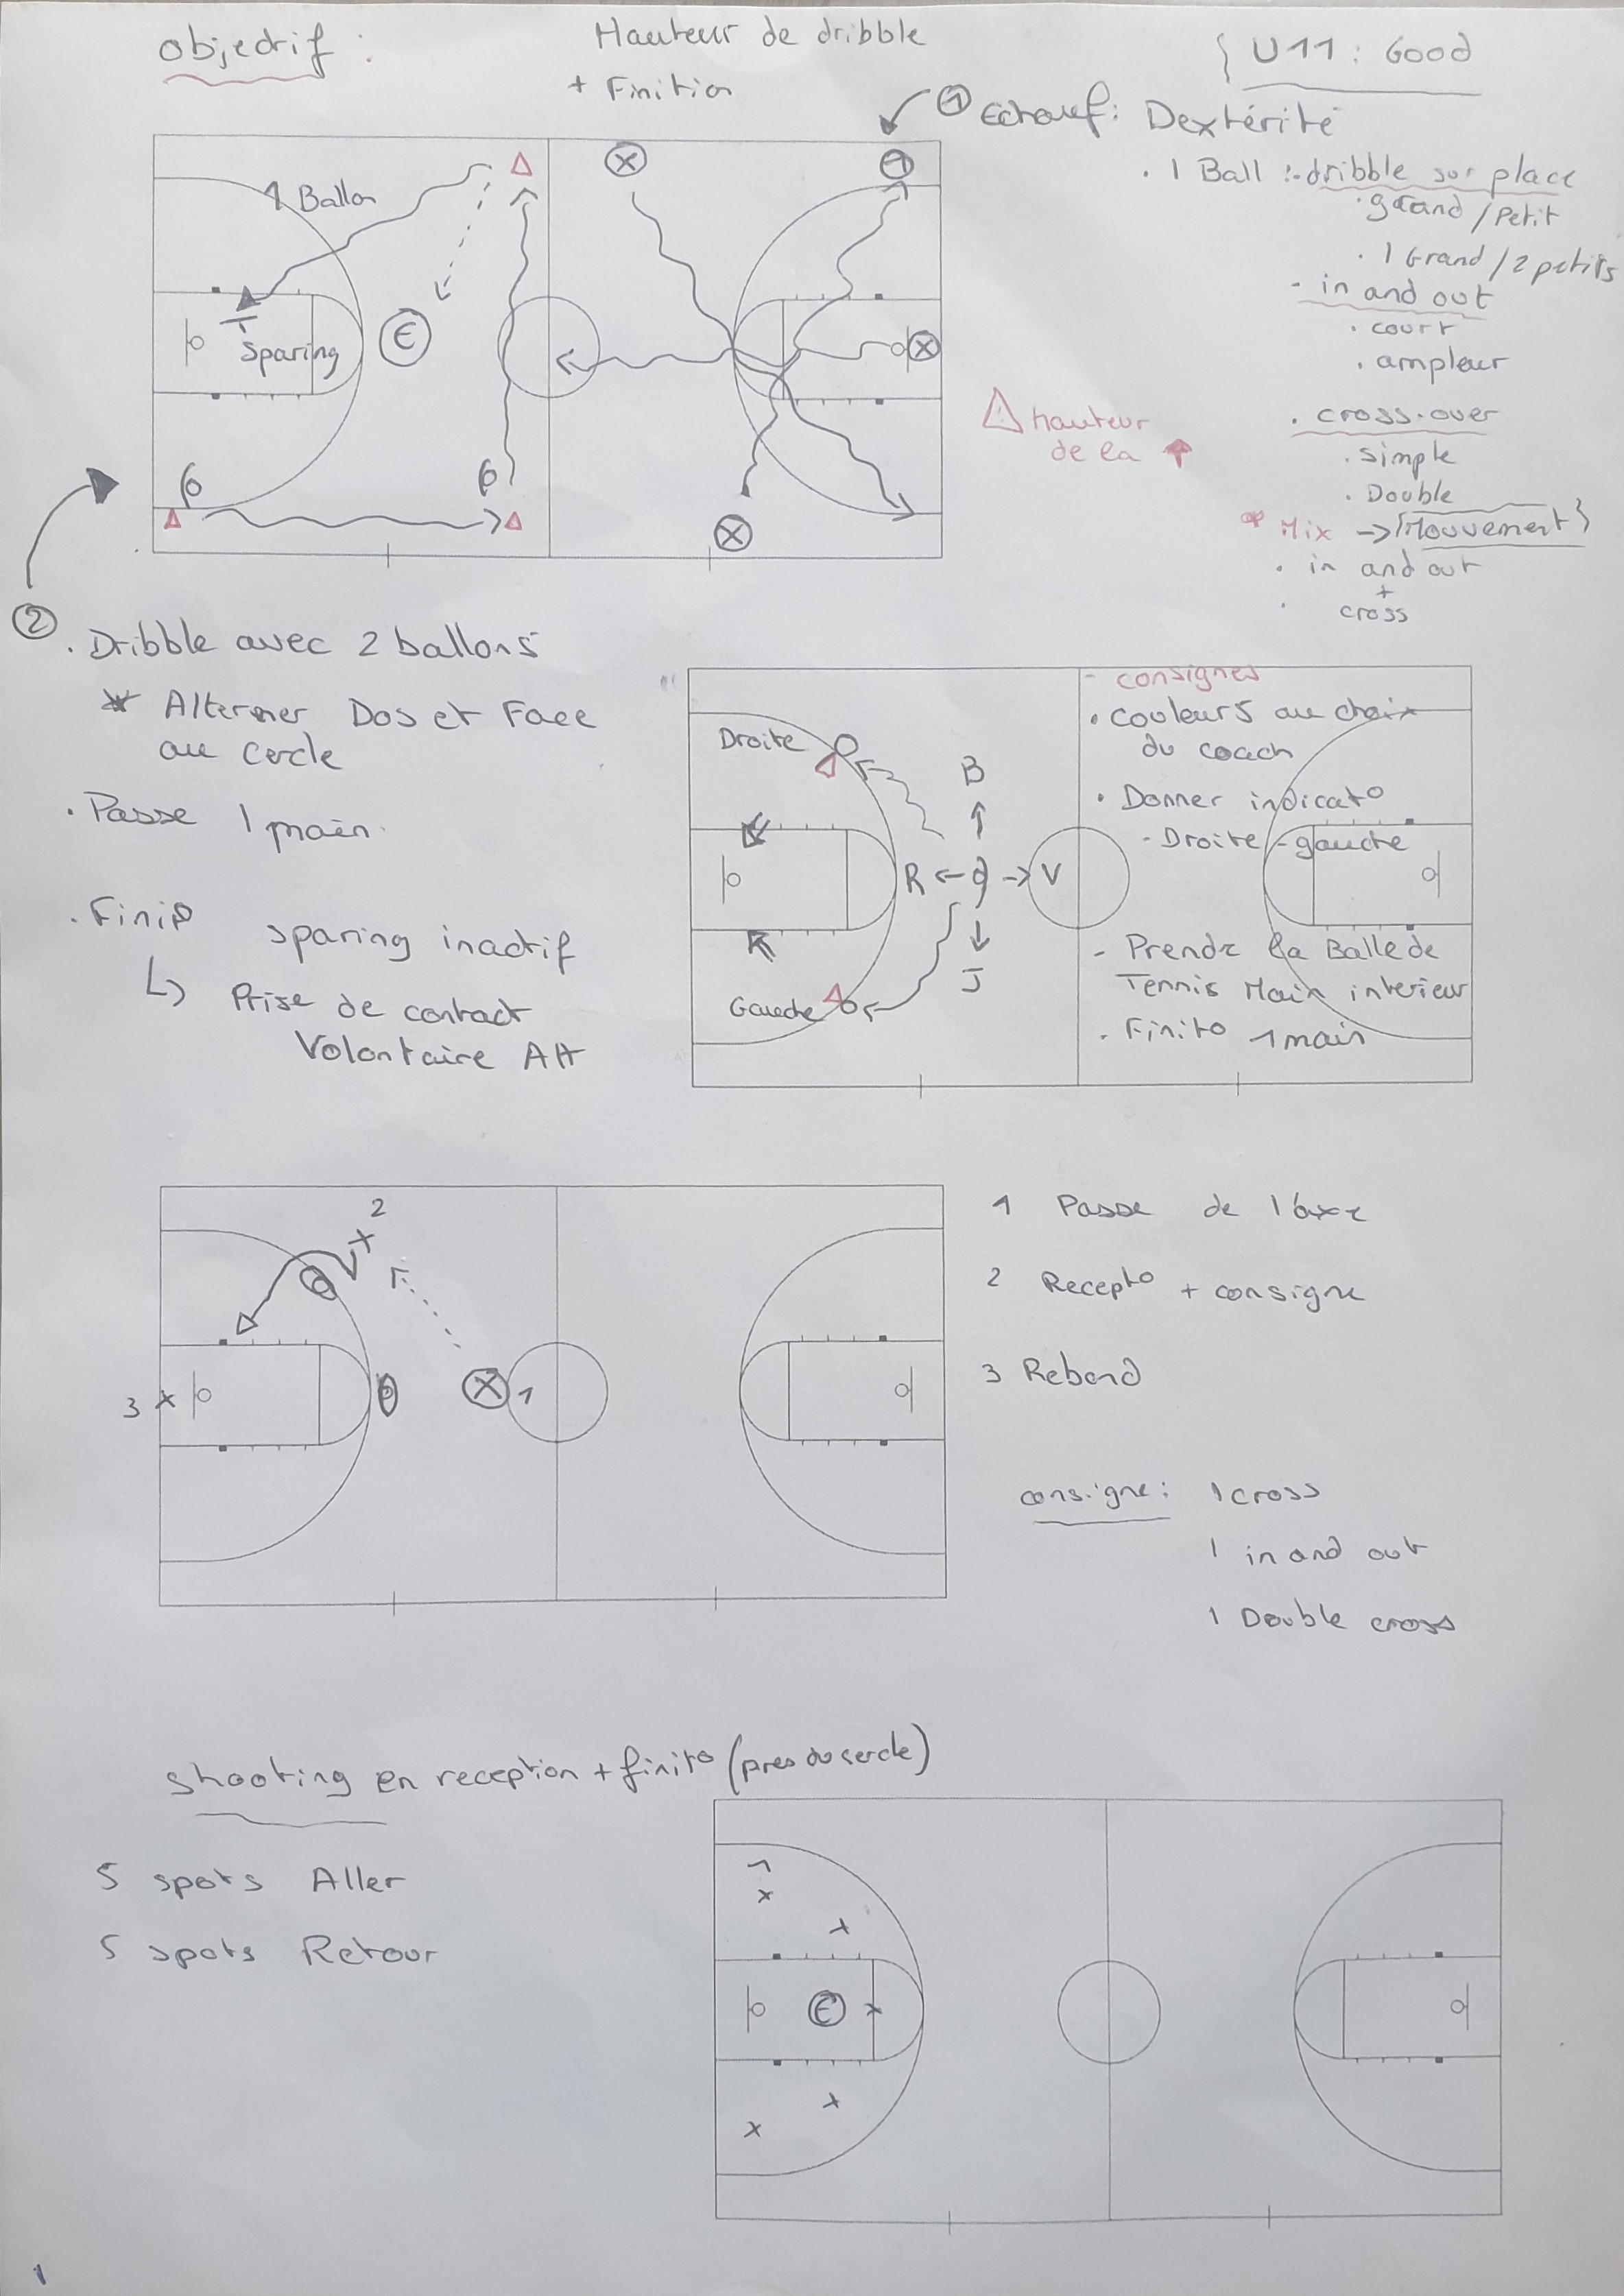 Objectif :
Hauteur de dribble
+ Finition
U11 : Good
① Echauf: Dextérité
. 1 Ball :-dribble sur place
. grand / Petit
. 1 Grand / 2 petits
- in and out
. court
. ampleur
. cross-over
. simple
. Double
* Mix -> {Mouvement}
. in and out
+
. cross
1 Ballon
X
X
X
C
Sparing
hauteur
de la
②
. Dribble avec 2 ballons
* Alterner Dos et Face
au cercle
. Passe 1 main.
. Finit°
sparing inactif
Prise de contact
Volontaire AH
- consignes
. couleurs au choix
du coach
. Donner indicat°
- Droite - gauche
- Prendre la Balle de
Tennis Main interieur
. Finit° 1 main
Droite
B
R <- -> V
J
Gauche
2
X
3 X
X 1
1 Passe de l'axe
2 Recept° + consigne
3 Rebond
consigne : 1 cross
1 in and out
1 Double cross
Shooting en reception + finit° (pres du cercle)
5 spots Aller
5 spots Retour
1
x
x
C x
x
x
1